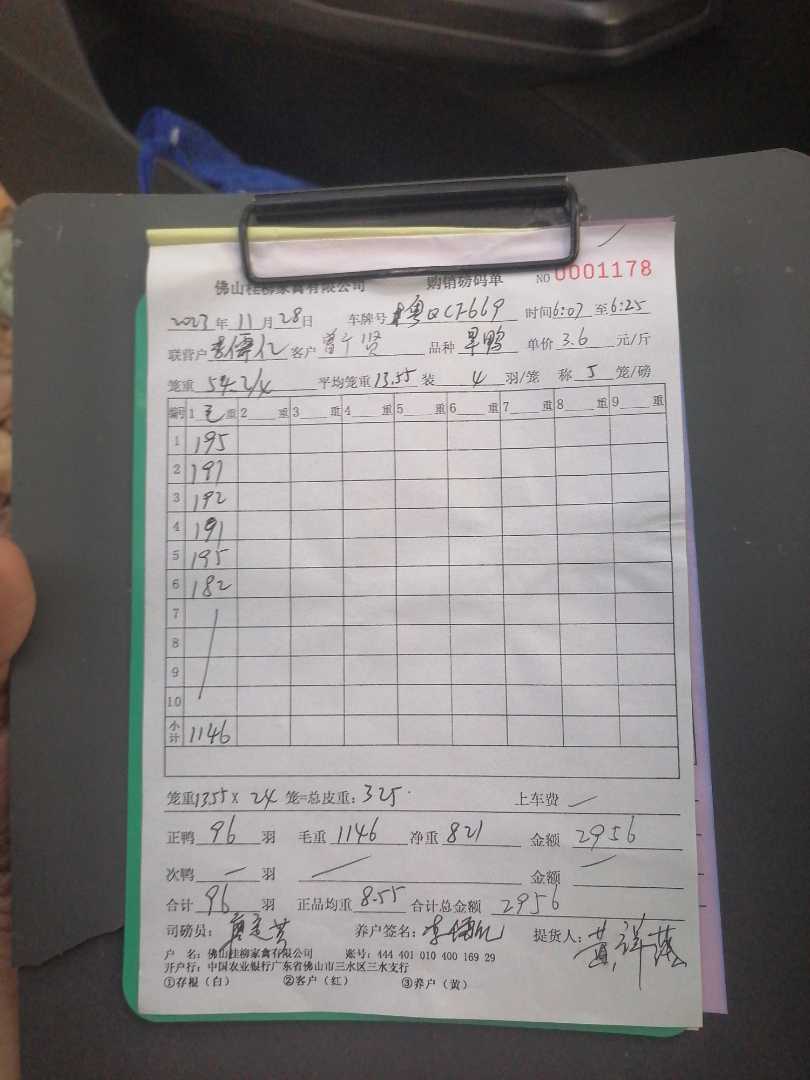 佛山桂柳家禽有限公司 购销磅码单 NO 0001178
2023年11月28日 车牌号 粤 时间6:07至6:25
联营户 客户 品种 旱鸭 单价3.6元/斤
笼重54.2/4 平均笼重13.55装4羽/笼 称5笼/磅
编号 1毛重 2重 3重 4重 5重 6重 7重 8重 9重
1 195
2 191
3 192
4 191
5 195
6 182
7
8
9
10
小计 1146
笼重13.55×24笼=总皮重:325. 上车费 —
正鸭96羽 毛重1146 净重821 金额2956
次鸭—羽 金额
合计96羽 正品均重8.55 合计总金额2956
司磅员: 养户签名: 提货人:
户 名: 佛山桂柳家禽有限公司 账号: 444 401 010 400 169 29
开户行: 中国农业银行广东省佛山市三水区三水支行
①存根(白) ②客户(红) ③养户(黄)